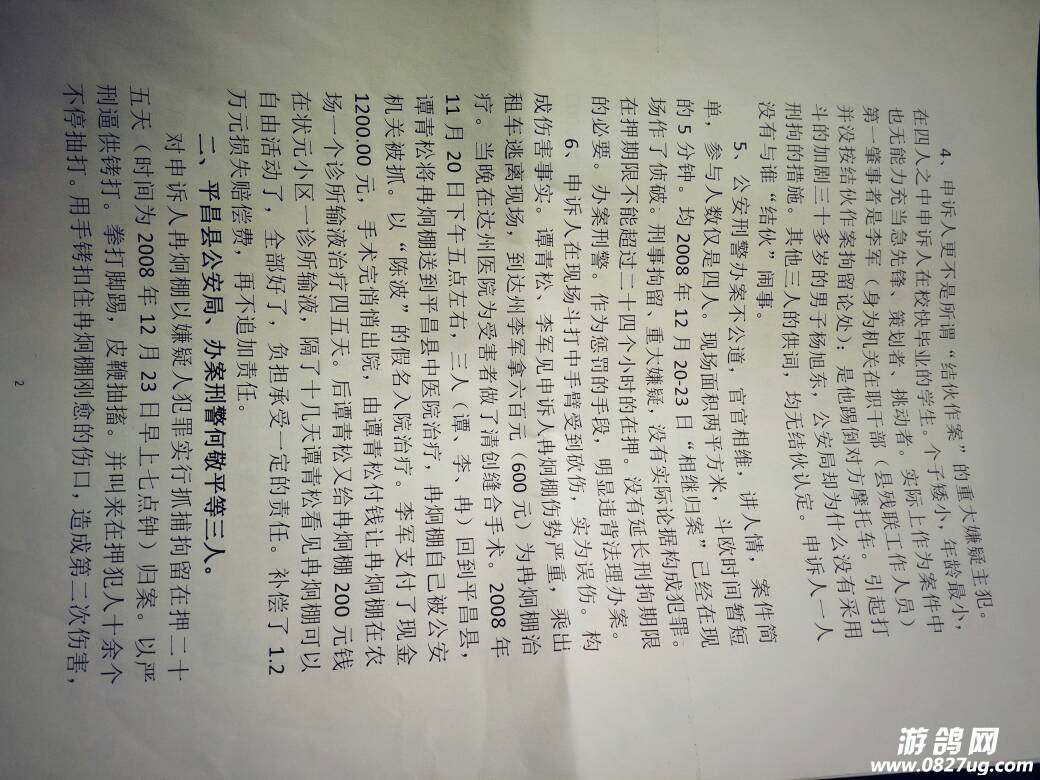 4、申诉人更不是所谓“结伙作案”的重大嫌疑主犯。
在四人之中申诉人在校快毕业的学生。个子矮小，年龄最小，
也无能力充当急先锋、策划者、挑动者。实际上作为案件中
第一肇事者是李军（身为机关在职干部（县残联工作人员）
并没按结伙作案拘留论处）；是他踢倒对方摩托车。引起打
斗的加剧三十多岁的男子杨旭东，公安局却为什么没有采用
刑拘的措施。其他三人的供词，均无结伙认定。申诉人一人
没有与谁“结伙”闹事。
5、公安刑警办案不公道，官官相维，讲人情，案件简
单，参与人数仅是四人。现场面积两平方米，斗欧时间暂短
的 5 分钟。均 2008 年 12 月 20-23 日“相继归案”已经在现
场作了侦破。刑事拘留、重大嫌疑，没有实际论据构成犯罪。
在押期限不能超过二十四个小时的在押。没有延长刑拘期限
的必要。办案刑警。作为惩罚的手段，明显违背法理办案。
6、申诉人在现场斗打中手臂受到砍伤，实为误伤。构
成伤害事实。谭青松、李军见申诉人冉炯棚伤势严重，乘出
租车逃离现场，到达州李军拿六百元（600 元）为冉炯棚治
疗。当晚在达州医院为受害者做了清创缝合手术。2008 年
11 月 20 日下午五点左右，三人（谭、李、冉）回到平昌县，
谭青松将冉炯棚送到平昌县中医院治疗，冉炯棚自己被公安
机关被抓。以“陈波”的假名入院治疗。李军支付了现金
1200.00 元，手术完悄悄出院，由谭青松付钱让冉炯棚在农
场一个诊所输液治疗四五天。后谭青松又给冉炯棚 200 元钱
在状元小区一诊所输液，隔了十几天谭青松看见冉炯棚可以
自由活动了，全部好了，负担承受一定的责任。补偿了 1.2
万元损失赔偿费，再不追加责任。
二、平昌县公安局、办案刑警何敬平等三人。
对申诉人冉炯棚以嫌疑人犯罪实行抓捕拘留在押二十
五天（时间为 2008 年 12 月 23 日早上七点钟）归案。以严
刑逼供铐打。拳打脚踢，皮鞭抽搕。并叫来在押犯人十余个
不停抽打。用手铐扣住冉炯棚刚愈的伤口，造成第二次伤害，
2
游鸽网
www.0827ug.com